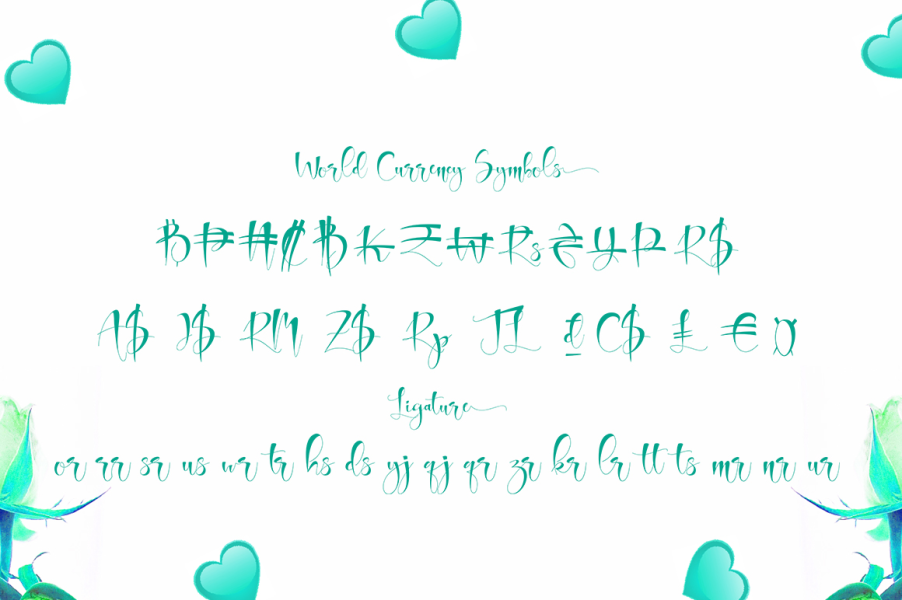 World Currency Symbols
₿ ₱ ₦ ₡ ฿ ₭ ₹ ₩ ₨ ₴ ¥ ₽ R$
A$ J$ RM Z$ Rp TL ₫ C$ £ € ¤
Ligature
or rr sr us wr tr hs ds yj qj qr zr kr lr tt ts mr nr ur